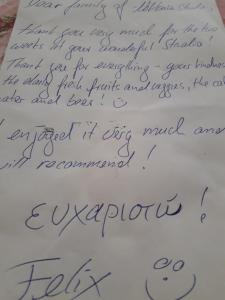 Dear family of
thank you very much for the two
weeks at your wonderful Studio!
Thank you for everything - your kindness,
the daily fresh fruits and veggies, the
water and beer! ☺
I enjoyed it very much and
will recommend!
ευχαριστώ!
Felix ☺